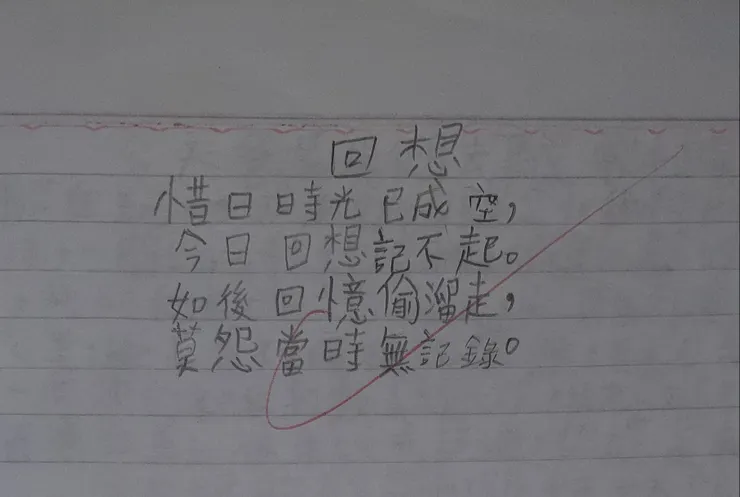 回想
惜日時光已成空，
今日回想記不起。
如後回憶偷溜走，
莫怨當時無記錄。